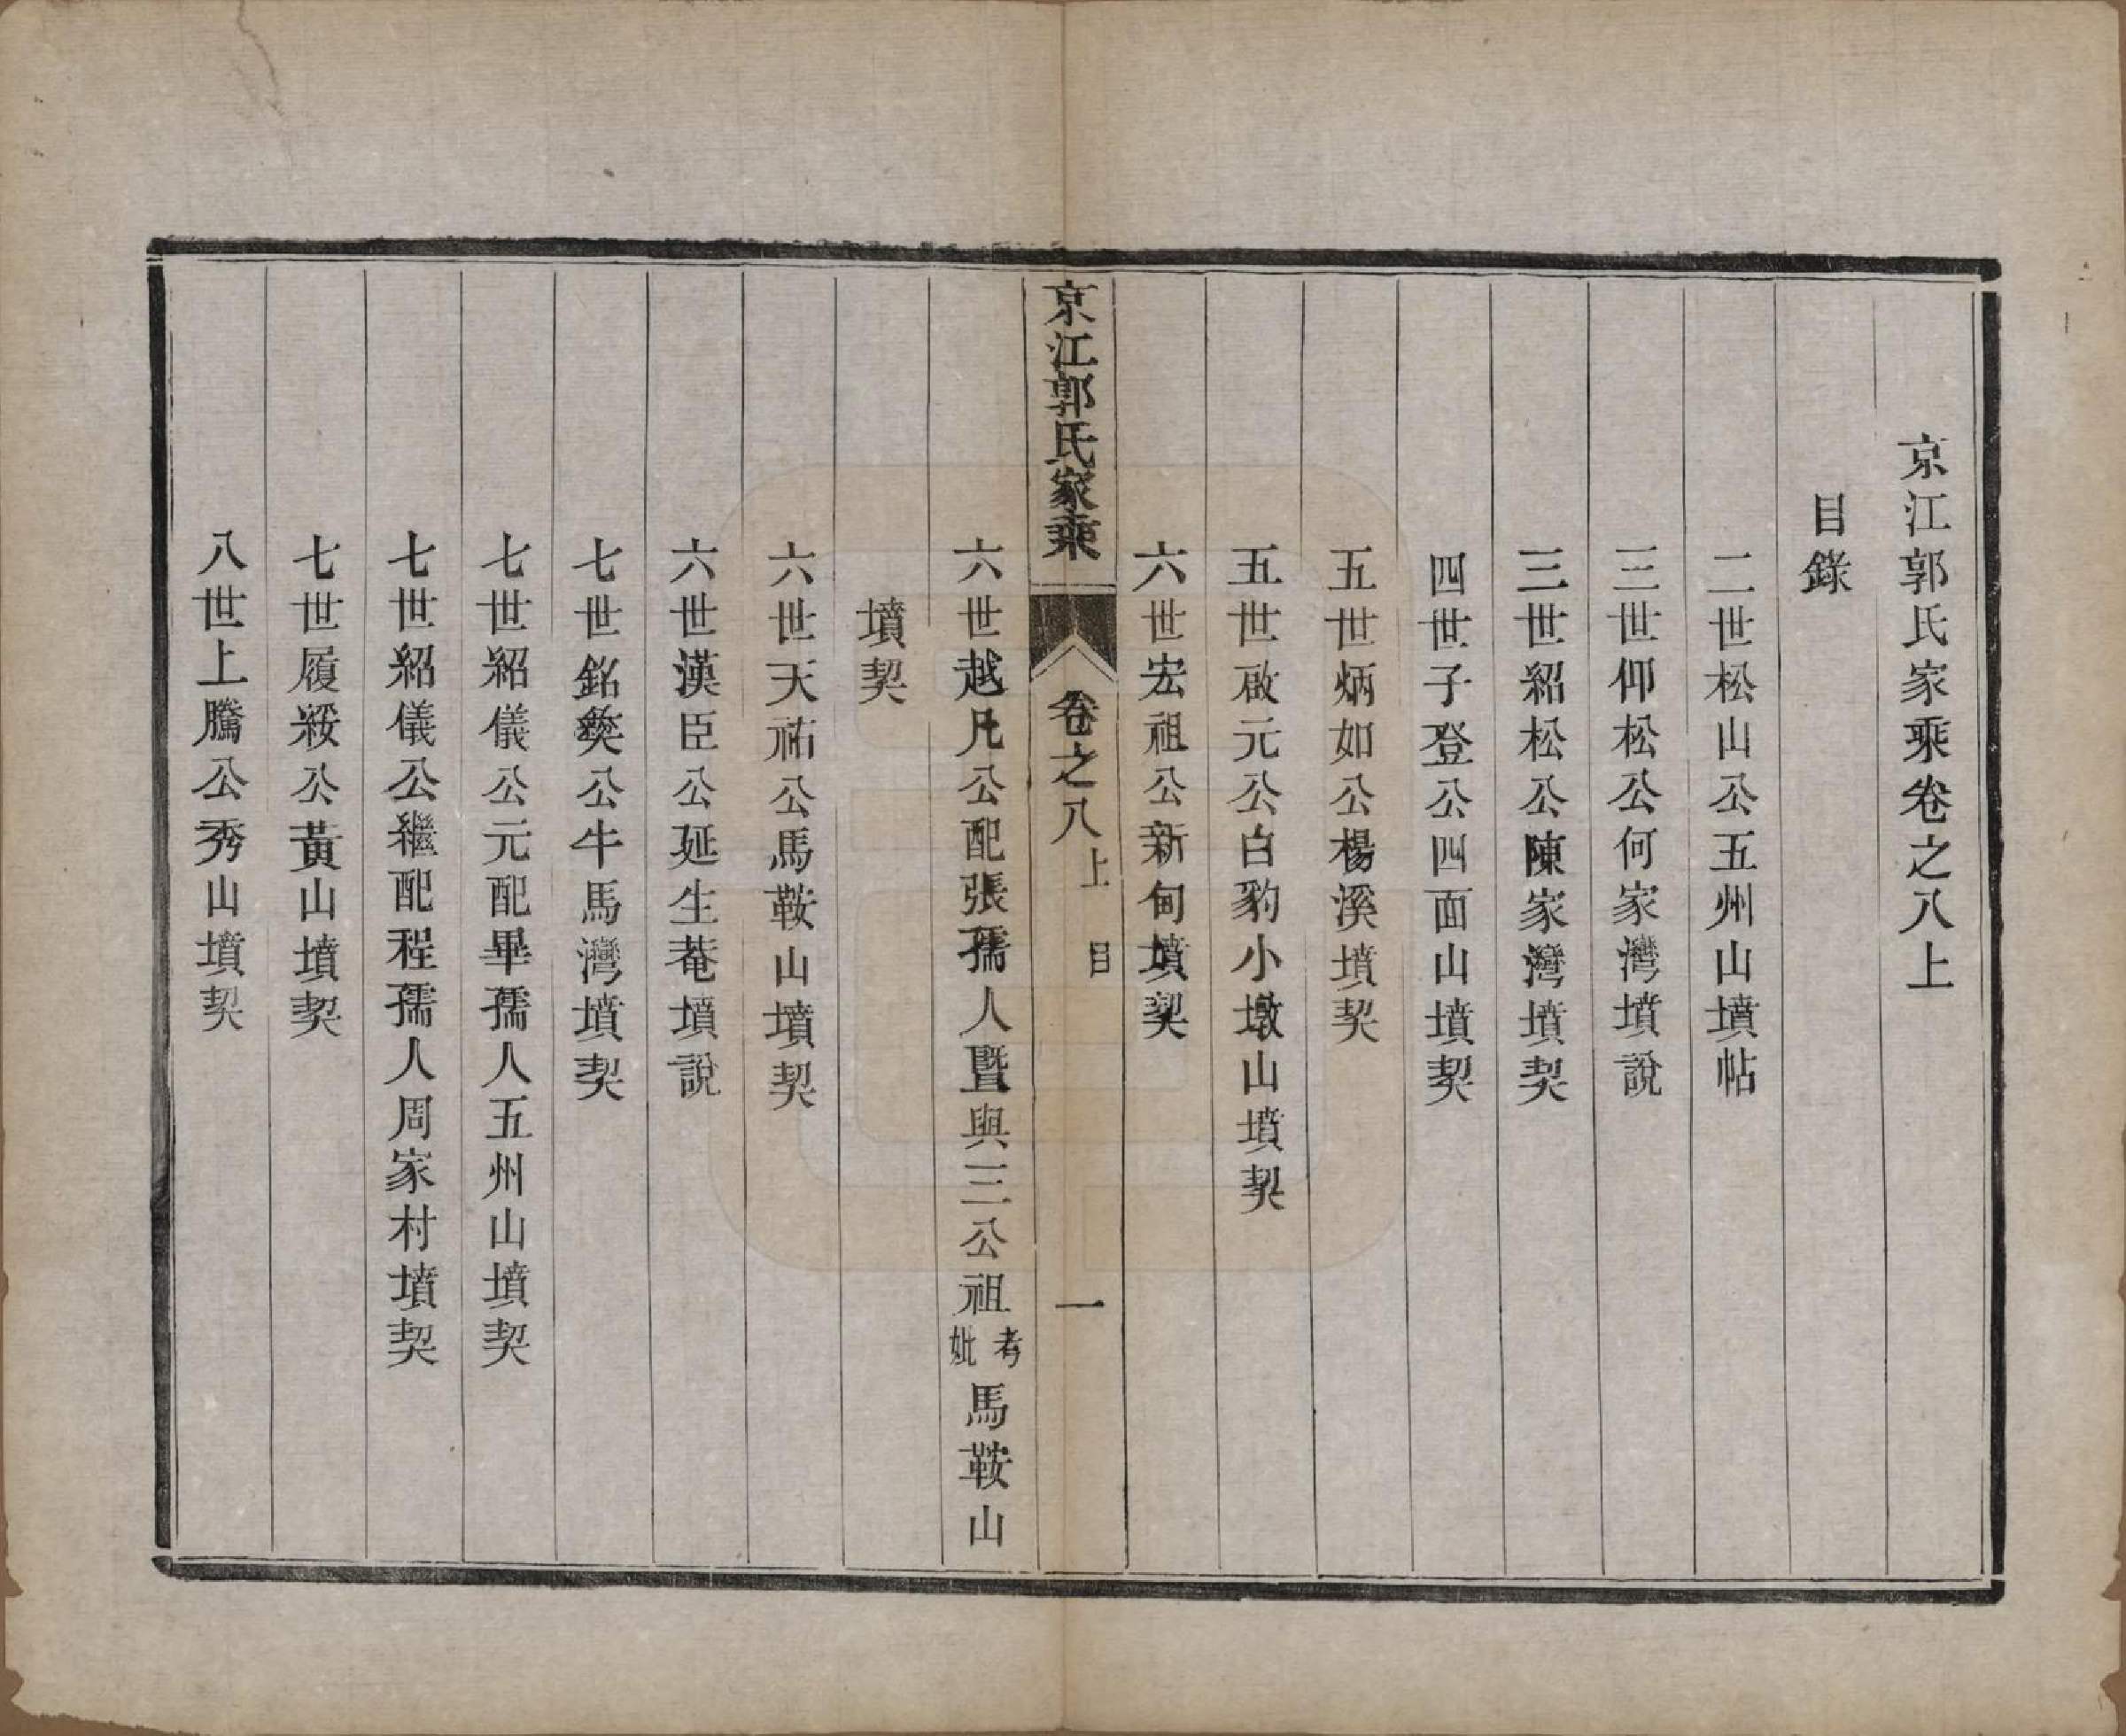 京江郭氏家乘卷之八上
目錄
二世松山公五州山墳帖
三世仰松公何家灣墳說
三世紹松公陳家灣墳契
四世子登公四面山墳契
五世炳如公楊溪墳契
五世啟元公白豹小墩山墳契
六世宏祖公新甸墳契
京江郭氏家乘 卷之八上 目 一
六世越凡公配張孺人暨與三公祖考妣馬鞍山
墳契
六世天祐公馬鞍山墳契
六世漢臣公延生菴墳說
七世銘燠公牛馬灣墳契
七世紹儀公元配畢孺人五州山墳契
七世紹儀公繼配程孺人周家村墳契
七世履綏公黃山墳契
八世上騰公秀山墳契